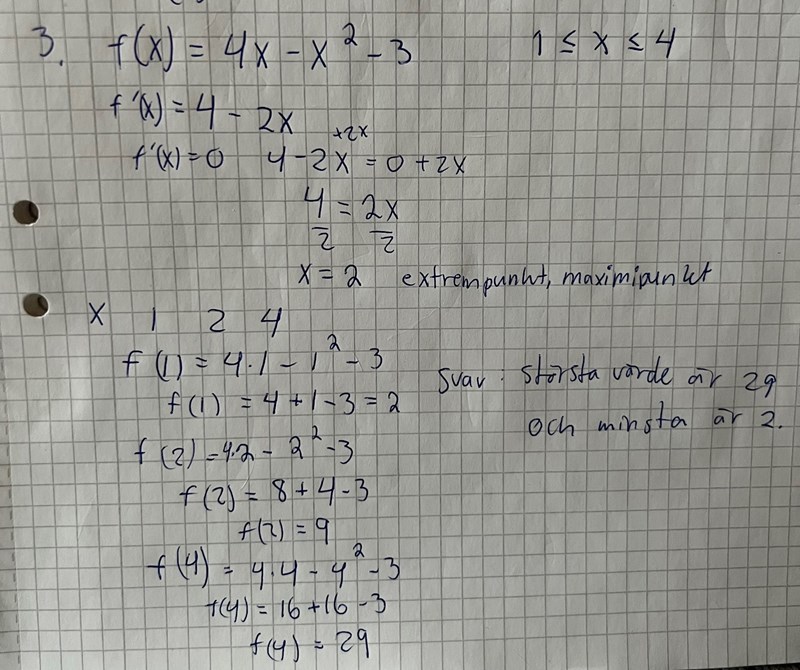 3. f(x) = 4x - x² - 3 1 ≤ x ≤ 4
f'(x) = 4 - 2x
+2x
f'(x) = 0 4 - 2x = 0 + 2x
4 = 2x
2 2
x = 2 extrempunkt, maximipunkt
x 1 2 4
f(1) = 4·1 - 1² - 3
f(1) = 4 + 1 - 3 = 2
f(2) = 4·2 - 2² - 3
f(2) = 8 + 4 - 3
f(2) = 9
f(4) = 4·4 - 4² - 3
f(4) = 16 + 16 - 3
f(4) = 29
Svar: största värde är 29
och minsta är 2.